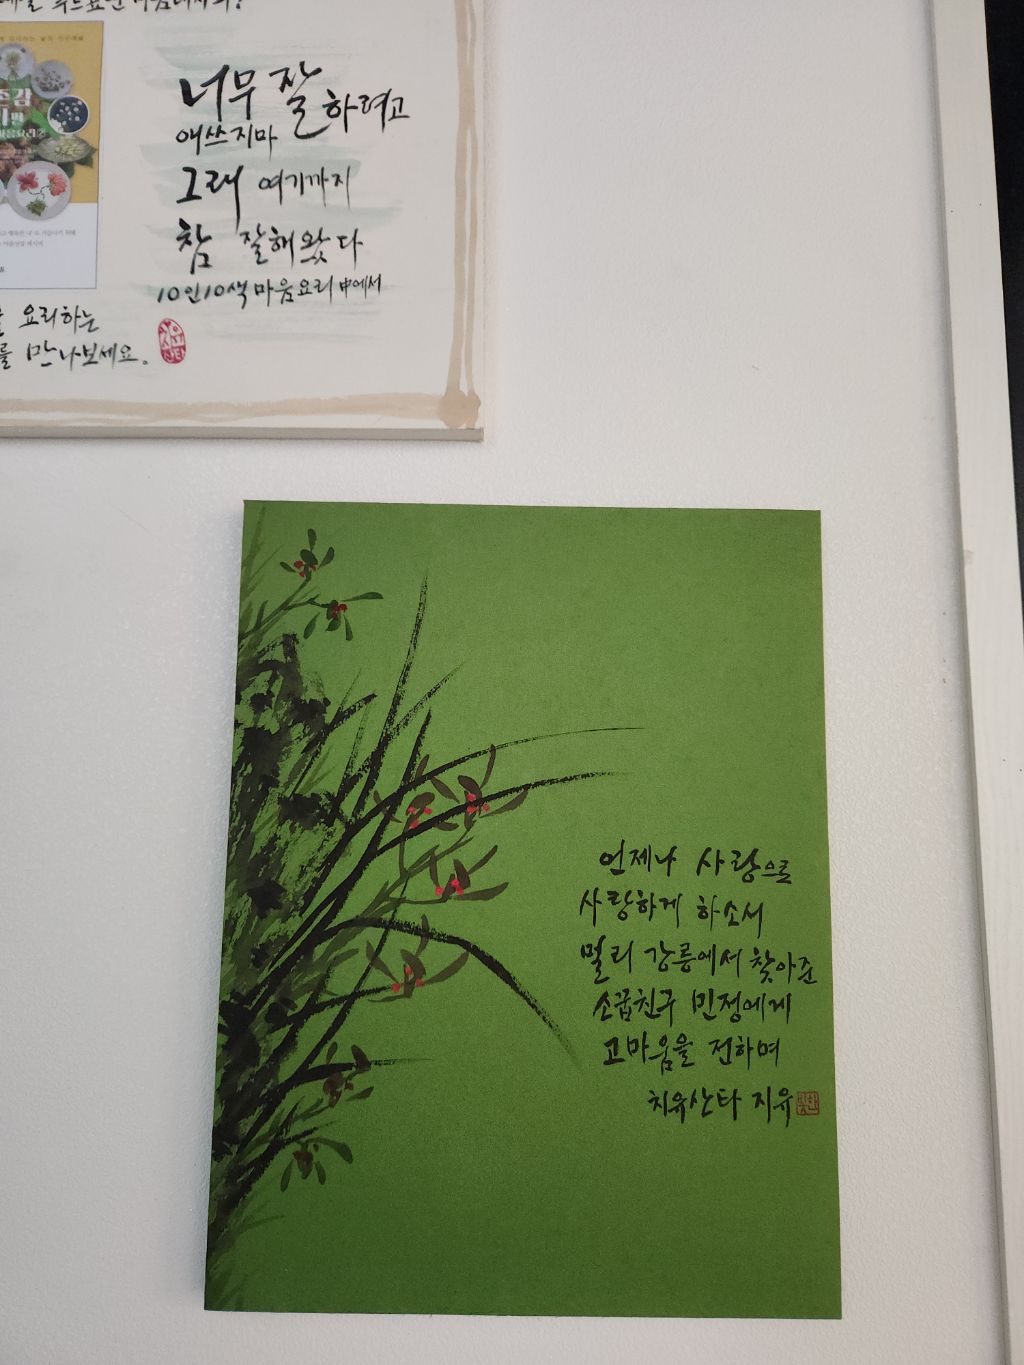 너무 잘 하려고
애쓰지마
그래 여기까지
참 잘해왔다
10인10색 마음요리 中에서
요리하는
를 만나보세요.
언제나 사랑으로
사랑하게 하소서
멀리 강릉에서 찾아준
소꿉친구 민정에게
고마움을 전하며
치유산타 지유